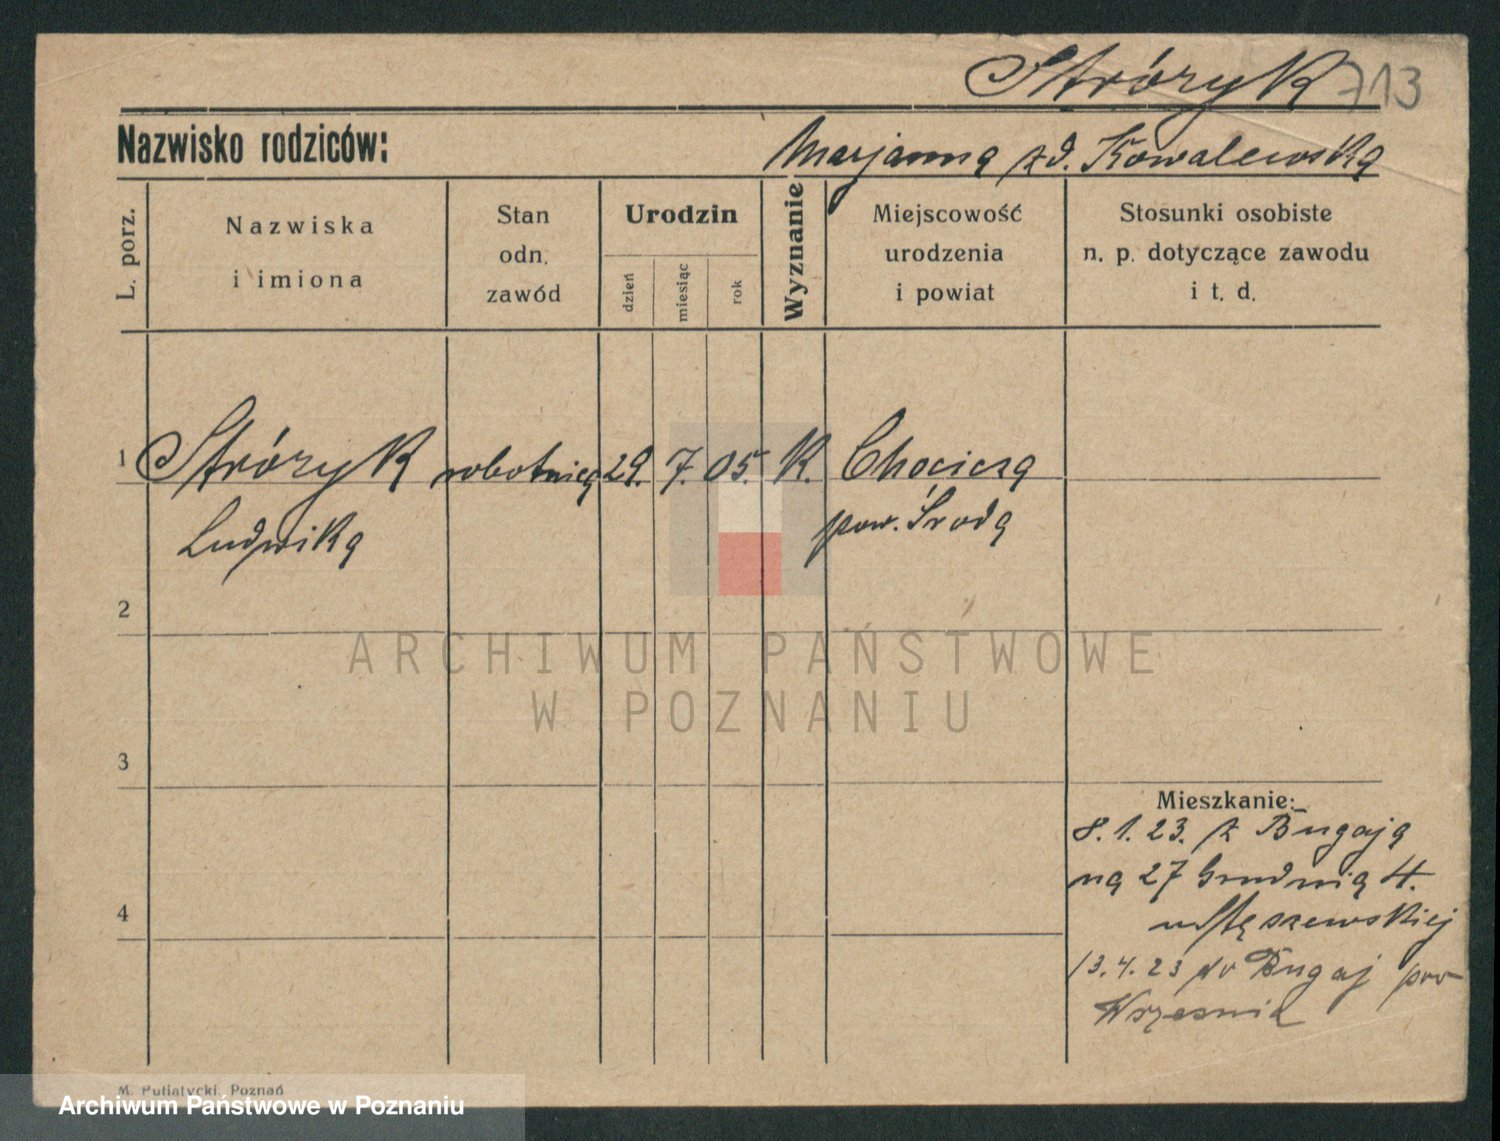 Stróżyk 713
Nazwisko rodziców: Marjanna zd. Kowalewska
L. porz.
Nazwiska
i imiona
Stan
odn.
zawód
Urodzin
dzień
miesiąc
rok
Wyznanie
Miejscowość
urodzenia
i powiat
Stosunki osobiste
n. p. dotyczące zawodu
i t. d.
1 Stróżyk robotnica 29. 7. 05. K. Chocicza
Ludwika pow. Środa
2
3
4
Mieszkanie:
8. 1. 23. z Bugaja
na 27 Grudnia 4.
13. 4. 23 do Bugaj pow
Września
ARCHIWUM PAŃSTWOWE
W POZNANIU
M. Putiatycki, Poznań
Archiwum Państwowe w Poznaniu